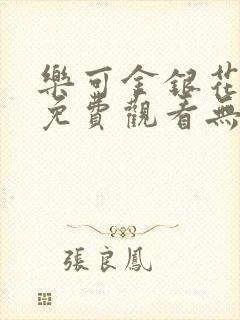 樂可金銀花
免費觀看無
張良鳳